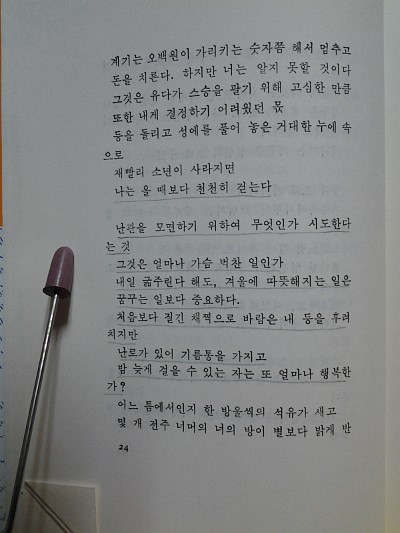 계기는 오백원이 가리키는 숫자쯤 해서 멈추고
돈을 치른다. 하지만 너는 알지 못할 것이다
그것은 유다가 스승을 팔기 위해 고심한 만큼
또한 내게 결정하기 어려웠던 몫
등을 돌리고 성에를 풀어 놓은 거대한 누에 속
으로
재빨리 소년이 사라지면
나는 올 때보다 천천히 걷는다
난관을 모면하기 위하여 무엇인가 시도한다
는 것
그것은 얼마나 가슴 벅찬 일인가
내일 굶주린다 해도, 겨울에 따뜻해지는 일은
꿈꾸는 일보다 중요하다.
처음보다 질긴 채찍으로 바람은 내 등을 후려
치지만
난로가 있어 기름통을 가지고
밤 늦게 걸을 수 있는 자는 또 얼마나 행복한
가?
어느 틈에서인지 한 방울씩의 석유가 새고
몇 개 전주 너머의 너의 방이 별보다 밝게 반
24